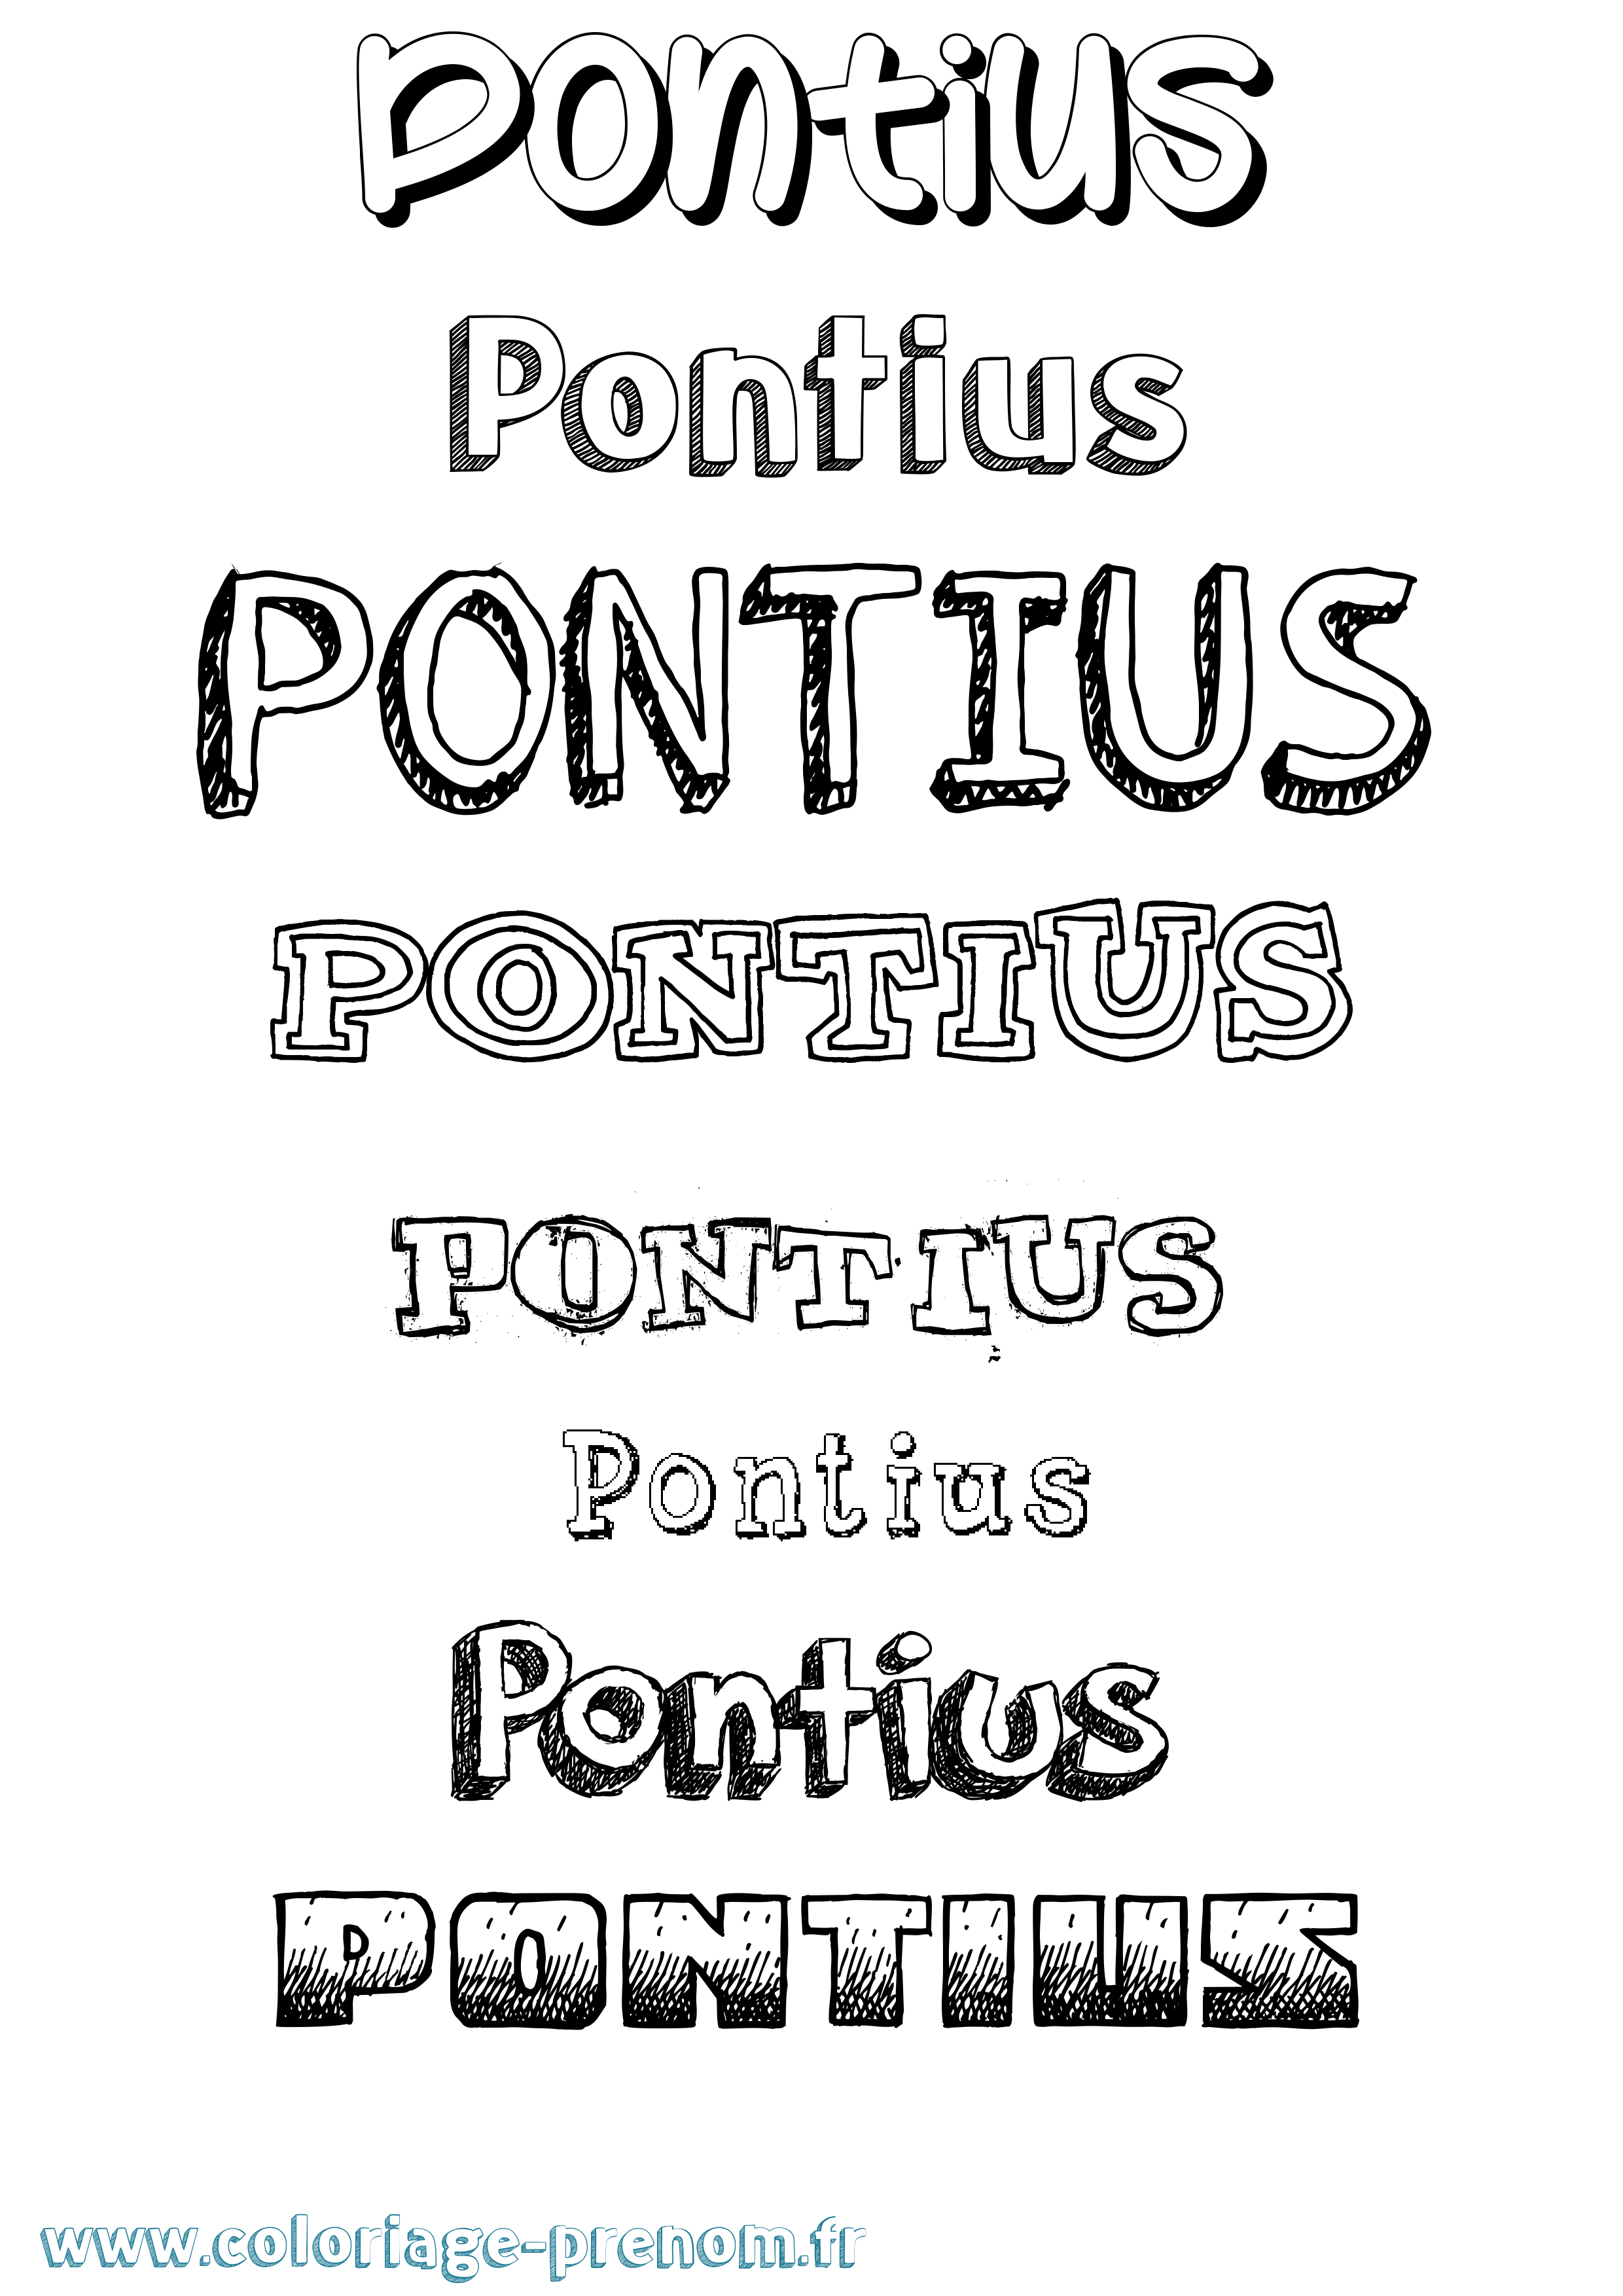 Pontius
Pontius
PONTIUS
PONTIUS
PONTIUS
Pontius
Pontius
PONTIUS
www.coloriage-prenom.fr